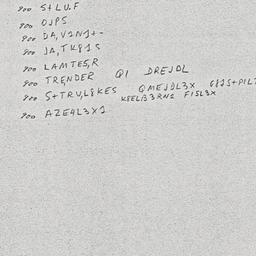 900 S+LU.F
900 OJPS
900 DA,V2N1+-
900 JA,TK81S
900 LAMTES,R
900 TRENDER QI DREJDL
900 S+TRV,L8KES QMEJDL3X
KSEL33RN2 FISL3X
900 AZE4L3X2